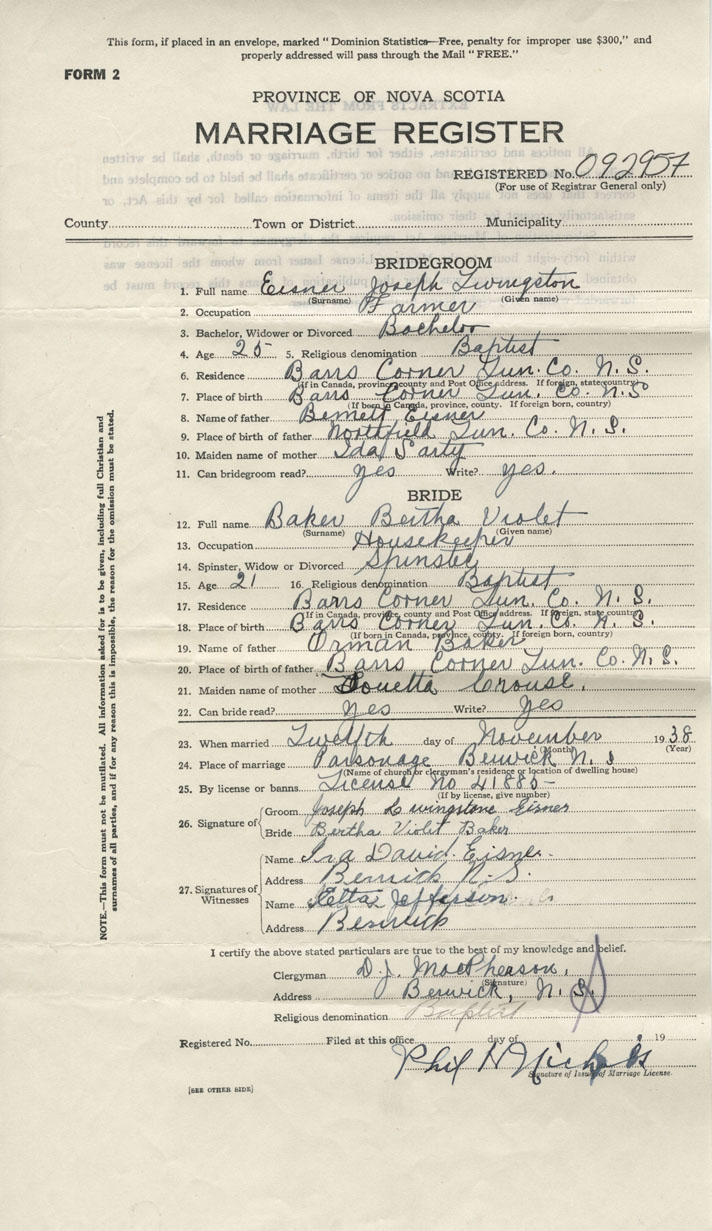 This form, if placed in an envelope, marked "Dominion Statistics—Free, penalty for improper use $300," and
properly addressed will pass through the Mail "FREE."
FORM 2
PROVINCE OF NOVA SCOTIA
MARRIAGE REGISTER
REGISTERED No. 092957
(For use of Registrar General only)
County Town or District Municipality
BRIDEGROOM
1. Full name Eisner Joseph Livingston
(Surname) (Given name)
2. Occupation Farmer
3. Bachelor, Widower or Divorced Bachelor
4. Age 25 5. Religious denomination Baptist
6. Residence Barss Corner Lun. Co. N. S.
(If in Canada, province, county and Post Office address. If foreign, state country)
7. Place of birth Barss Corner Lun. Co. N.S
(If born in Canada, province, county. If foreign born, country)
8. Name of father Eisner
9. Place of birth of father Northfield Lun. Co. N. S.
10. Maiden name of mother Ida Sarty
11. Can bridegroom read? yes Write? yes.
BRIDE
12. Full name Baker Bertha Violet
(Surname) (Given name)
13. Occupation Housekeeper
14. Spinster, Widow or Divorced Spinster
15. Age 21 16. Religious denomination Baptist
17. Residence Barss Corner Lun. Co. N. S.
(If in Canada, province, county and Post Office address. If foreign, state country)
18. Place of birth Barss Corner Lun. Co. N. S.
(If born in Canada, province, county. If foreign born, country)
19. Name of father Orman Baker
20. Place of birth of father Barss Corner Lun. Co. N. S.
21. Maiden name of mother Louetta Crouse.
22. Can bride read? yes Write? Yes
23. When married Twelfth day of November 1938
(Month) (Year)
24. Place of marriage Parsonage Berwick N. S
(Name of church or clergyman's residence or location of dwelling house)
25. By license or banns License No 41885
(If by license, give number)
26. Signature of Groom Joseph Livingstone Eisner
Bride Bertha Violet Baker
27. Signatures of Witnesses
Name Ira David Eisner
Address Berwick N.S.
Name Etta Jefferson
Address Berwick
I certify the above stated particulars are true to the best of my knowledge and belief.
Clergyman D. J. MacPherson,
(Signature)
Address Berwick, N. S.
Religious denomination Baptist
Registered No. Filed at this office day of 19
Phil H Nichols
Signature of Issuer of Marriage License.
[SEE OTHER SIDE]
NOTE.—This form must not be mutilated. All information asked for is to be given, including full Christian and
surnames of all parties, and if for any reason this is impossible, the reason for the omission must be stated.